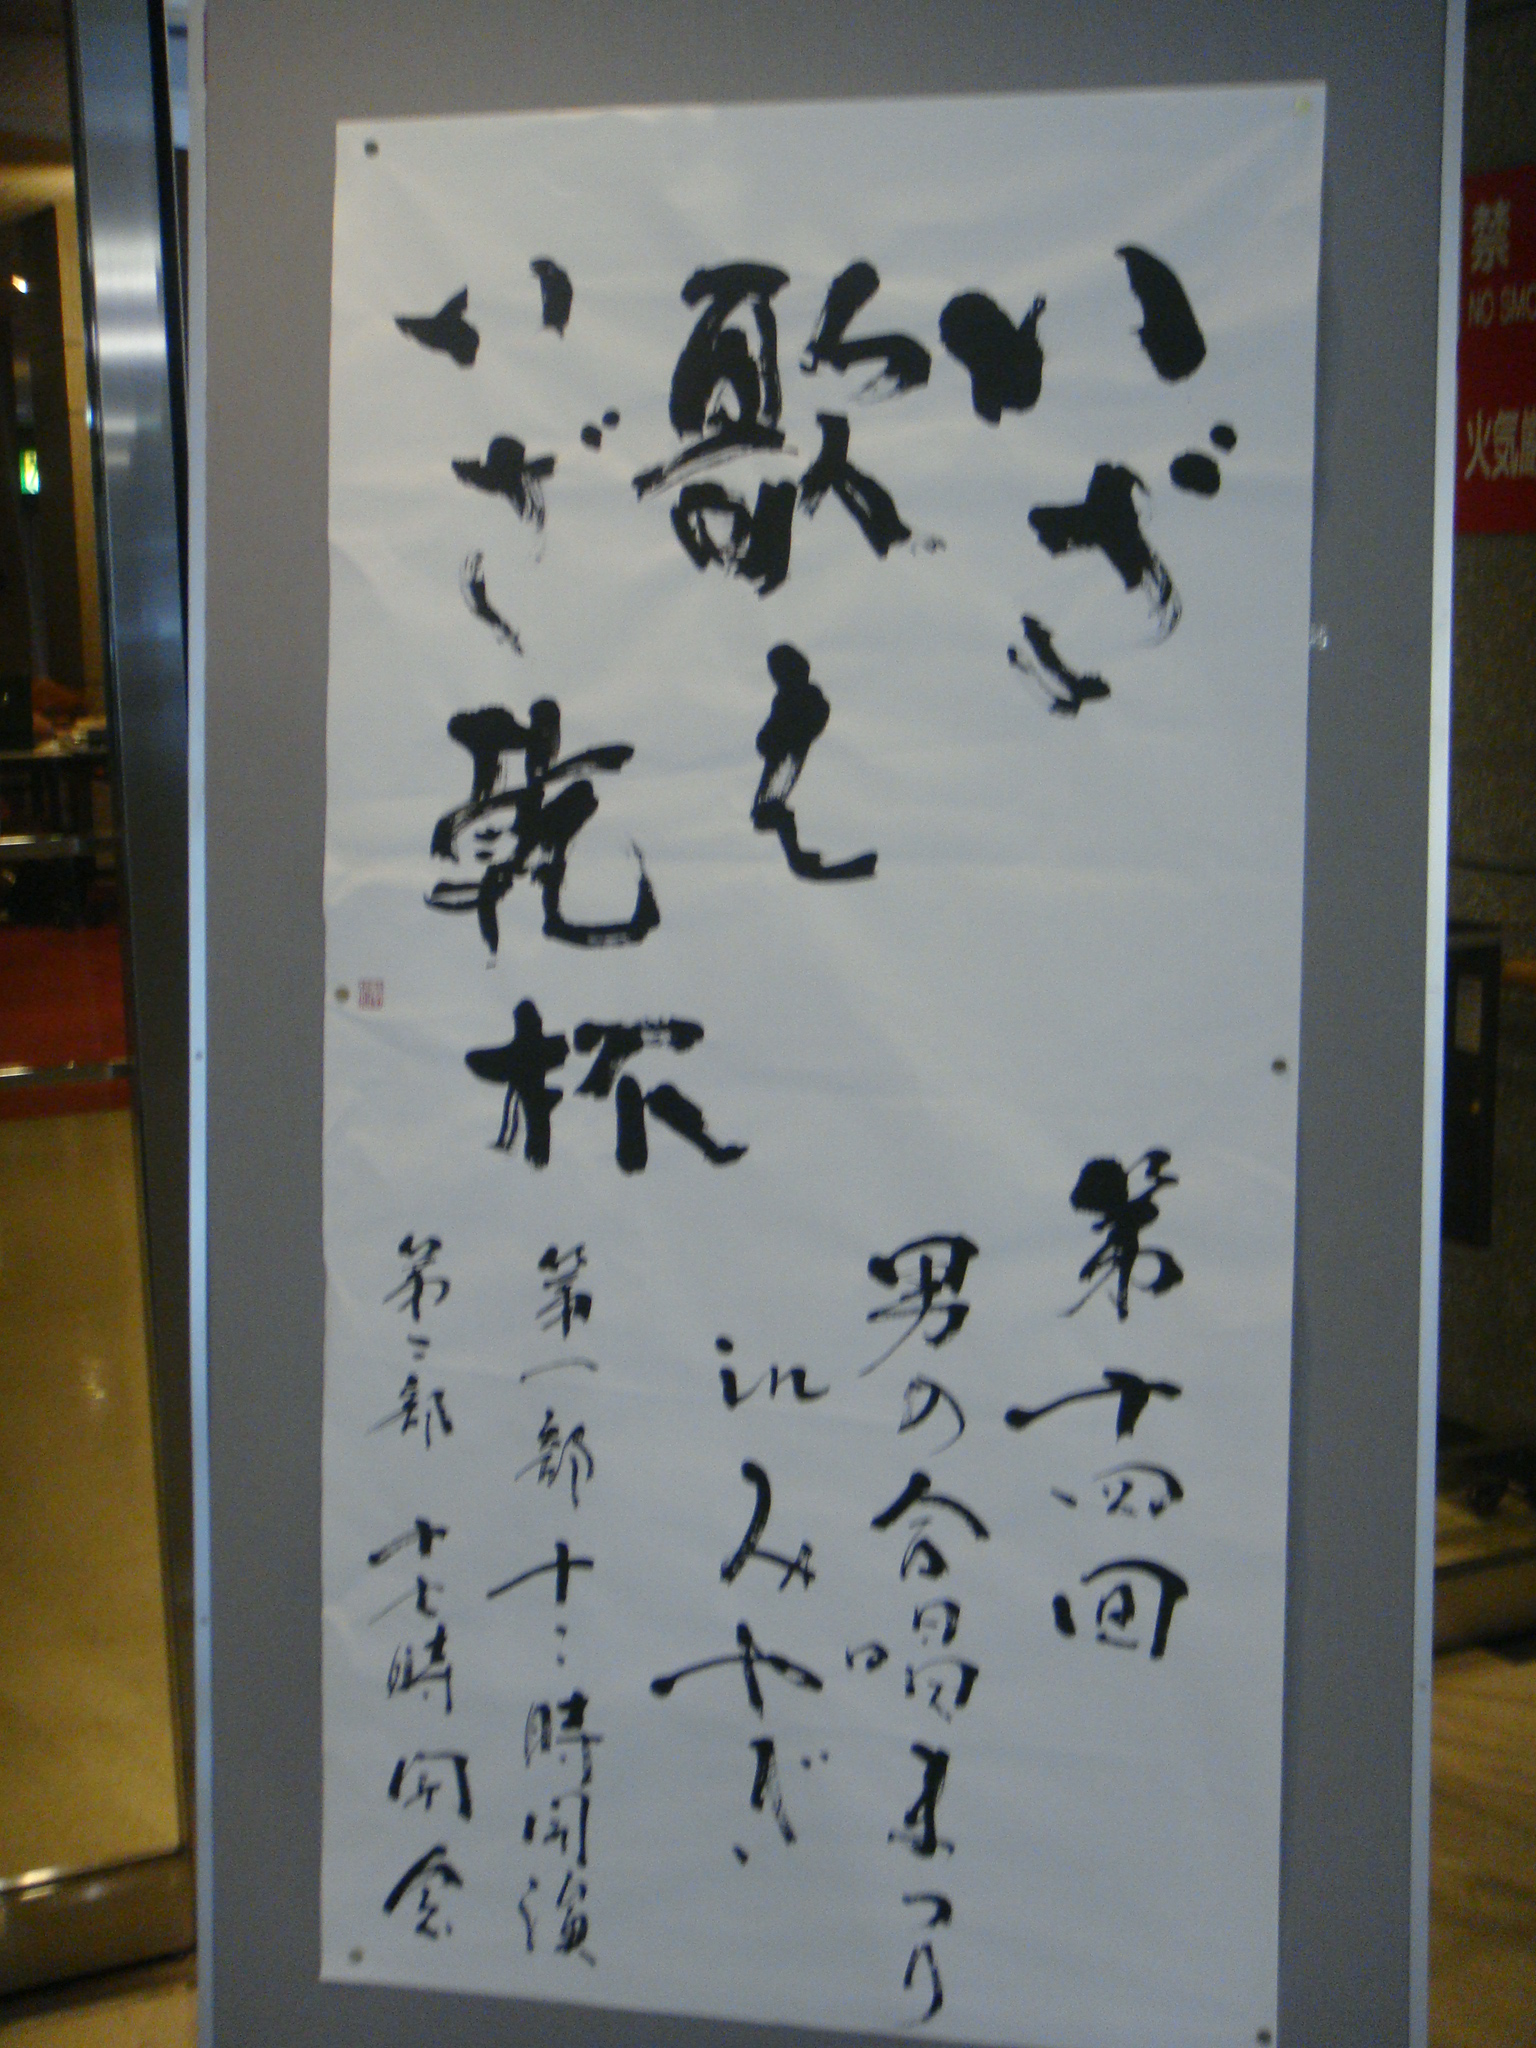 いざ
歌え
いざ乾杯
第十四回
男の合唱まつり
inみやぎ
第一部 十二時開演
第二部 十七時開会
禁
NO SMO
火気厳